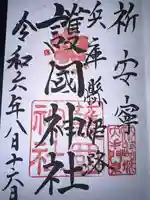 祈安寧
兵庫縣姫路
護國神社
令和六年八月十六日